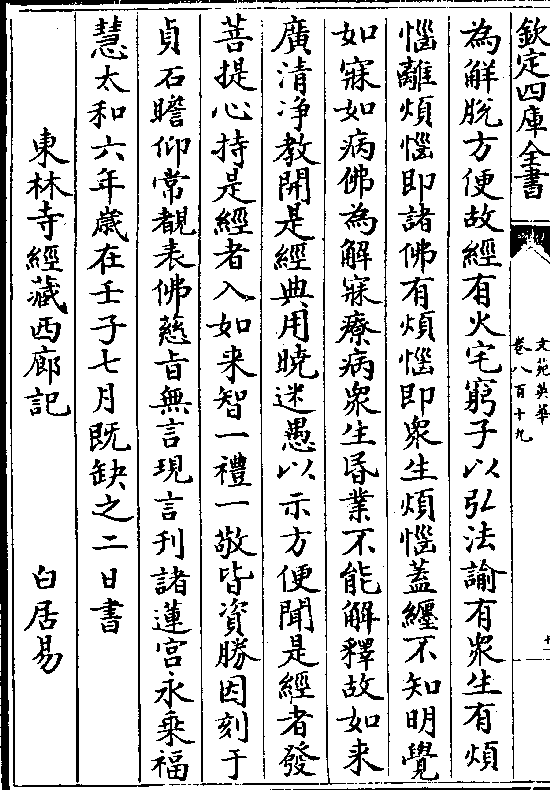 欽定四庫全書
文苑英華
卷八百十九
十一
為解脫方便故經有火宅窮子以弘法諭有衆生有煩
惱離煩惱即諸佛有煩惱即衆生煩惱蓋纒不知明覺
如寐如病佛為解寐療病衆生昬業不能解釋故如来
廣清浄教開是經典用曉迷愚以示方便聞是經者發
菩提心持是經者入如来智一禮一敬皆資勝因刻于
貞石瞻仰常覩表佛慈㫖無言現言刊諸蓮宮永乗福
慧太和六年嵗在壬子七月既缺之二日書
東林寺經藏西廊記 白居易